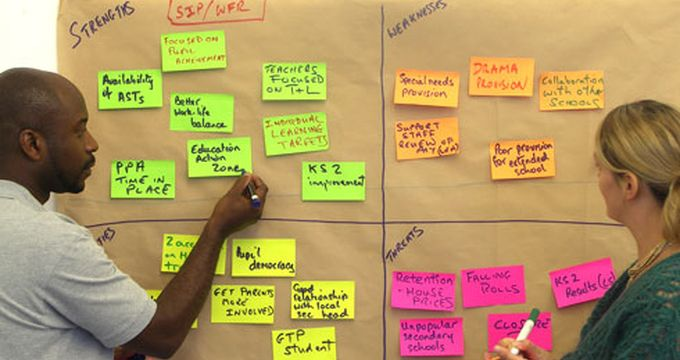 STRENGTHS
SIP/WFR
FOCUSED ON
PUPIL
ACHIEVEMENT
Availability
of ASTs
TEACHERS
FOCUSED
ON T+L
Better
Work life
balance
INDIVIDUAL
LEARNING
TARGETS
Education
Action
Zone
PPA
TIME IN
PLACE
KS2
improvement
WEAKNESSES
Special needs
provision
DRAMA
PROVISION
Collaboration
with other
Schools
SUPPORT
STAFF
REVIEW OF
Poor provision
for extended
school
TIES
Pupil
democracy
GET PARENTS
MORE
INVOLVED
Good
relationship
with local
sec head
GTP
student
THREATS
Retention
- HOUSE
PRICES
FALLING
ROLLS
KS2
Results
Unpopular
secondary
schools
CLOSURE